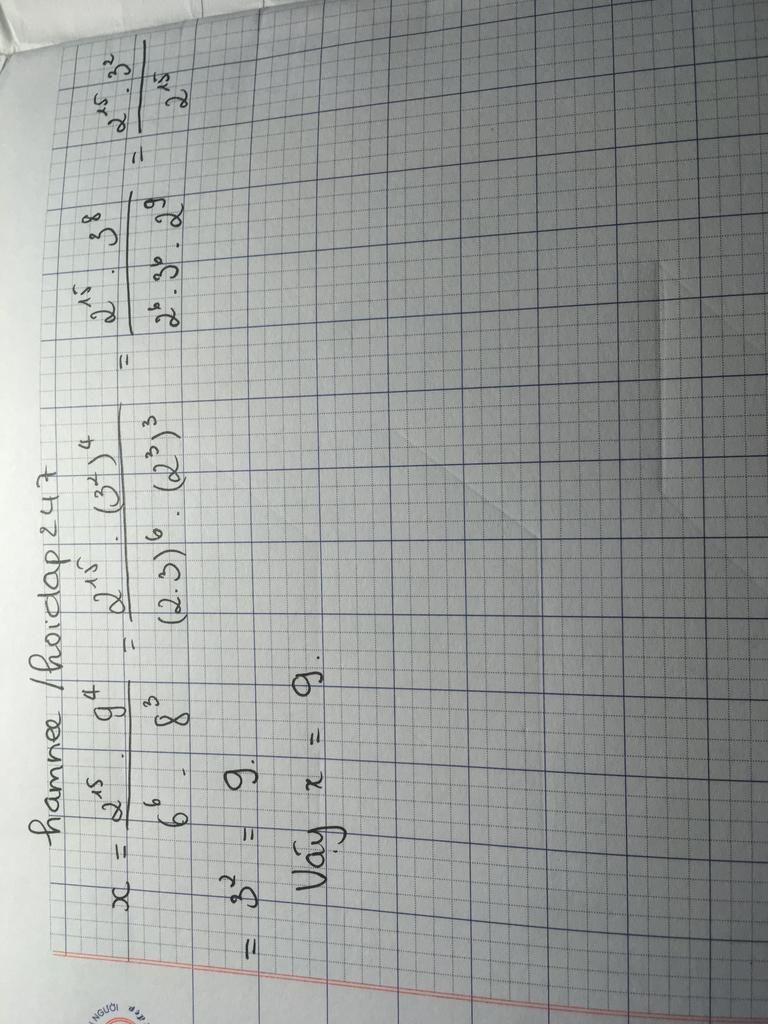 hamnee / hoidap247
x = (2^15 . 9^4)/(6^6 . 8^3) = (2^15 . (3^2)^4)/((2.3)^6 . (2^3)^3) = (2^15 . 3^8)/(2^6 . 3^6 . 2^9) = (2^15 . 3^2)/(2^15)
= 3^2 = 9.
Vậy x = 9.
NGƯỜI